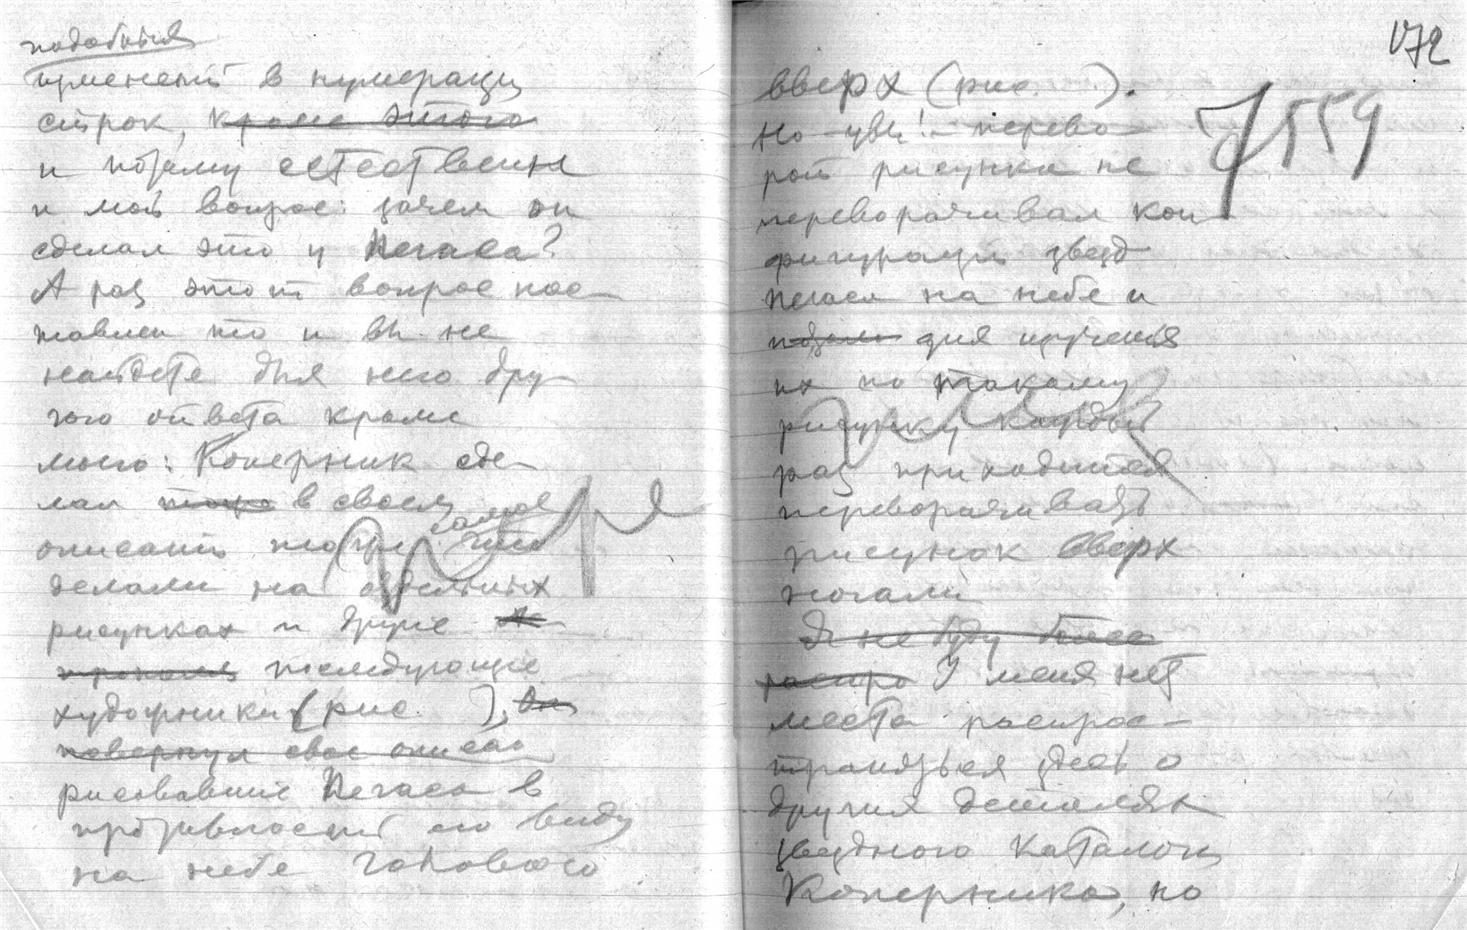 подобныя
применений в нумерации
строк, кроме этого
и потому естественен
и мой вопрос: зачем он
сделал это у Пегаса?
А раз этот вопрос пос-
тавлен то и вы не
найдете для него дру-
гого ответа кроме
моего: Коперник сде-
лал в своем
описании то же самое что
делали на отдельных
рисунках и другие
последующие
художники (рис. ),
повернул свое описа
рисовавшие Пегаса в
противность его виду
на небе головою
172
вверх (рис. ).
7559
Но увы! перево-
рот рисунка не
переворачивал кон
фигурации звезд
Пегаса на небе и
для изучения
их по такому
рисунку каждый
раз приходится
переворачивать
рисунок вверх
ногами
Я не буду более
распро У меня нет
места распрос-
траняться здесь о
других деталях
звездного каталога
Коперника, но